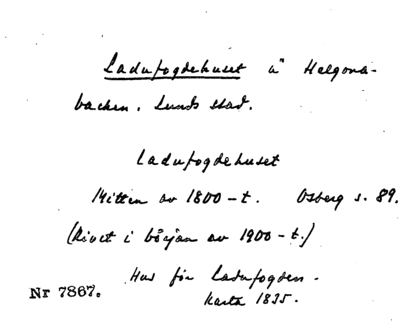 Ladufogdehuset å Helgona-
backen. Lunds stad.
Ladufogdehuset
Mitten av 1800-t. Osberg s. 89.
(Rivet i början av 1900-t.)
Hus för ladufogden.
Karta 1835.
Nr 7867.